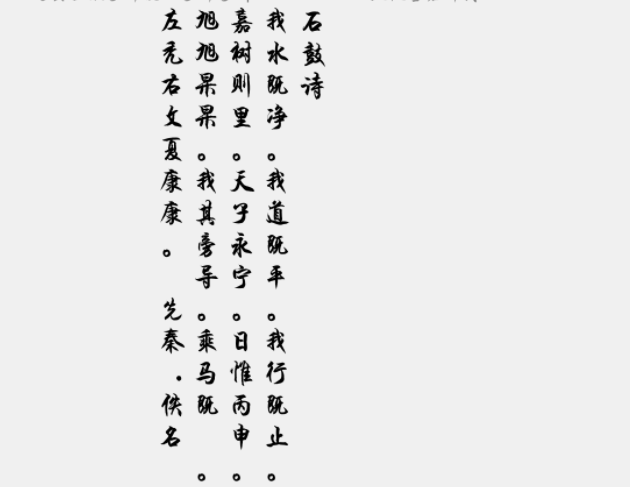 石鼓诗
我水既净。我道既平。我行既止。
嘉树则里。天子永宁。日惟丙申。
旭旭杲杲。我其旁导。乘马既 。
左右文夏康康。 先秦.佚名